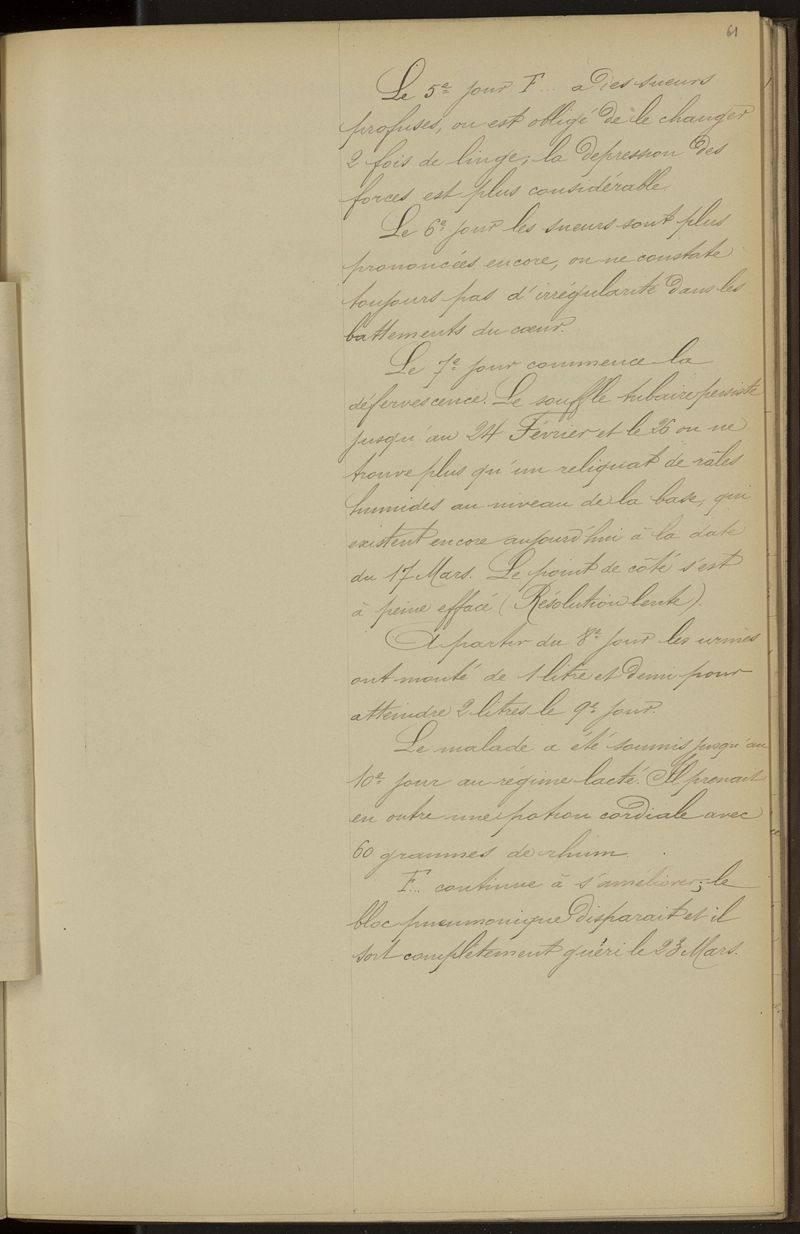 61
Le 5e jour F... a des sueurs
profuses, on est obligé de le changer
2 fois de linge; la depression des
forces est plus considérable.
Le 6e jour les sueurs sont plus
prononcées encore, on ne constate
toujours pas d'irrégularité dans les
battements du cœur.
Le 7e jour commence la
défervescence. Le souffle tubaire persiste
jusqu'au 24 Février et le 26 on ne
trouve plus qu'un reliquat de râles
humides au niveau de la base, qui
existent encore aujourd'hui à la date
du 17 Mars. Le point de côté s'est
à peine effacé (Résolution lente).
A partir du 8e jour les urines
ont monté de 1 litre et demi pour
atteindre 2 litres le 9e jour.
Le malade a été soumis jusqu'au
10e jour au régime lacté. Il prenait
en outre une potion cordiale avec
60 grammes de rhum.
F... continue à s'améliorer; le
bloc pneumonique disparait et il
sort complètement guéri le 23 Mars.